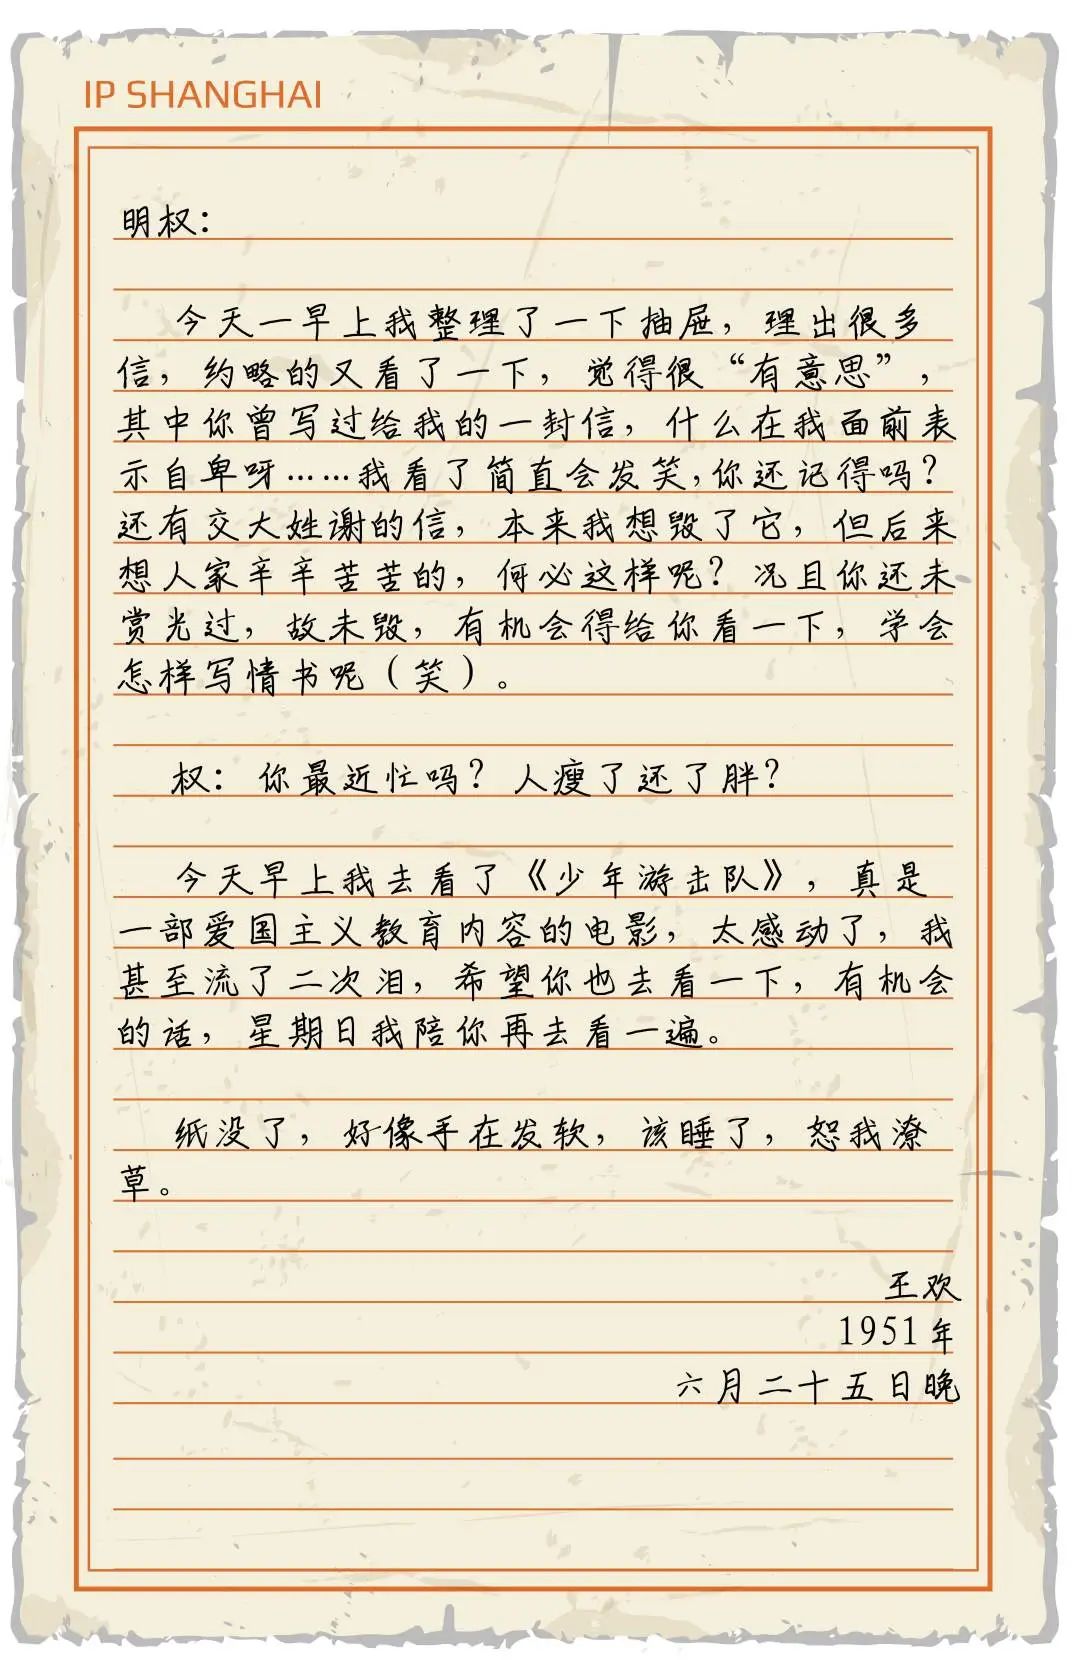 IP SHANGHAI
明权：
今天一早上我整理了一下抽屉，理出很多
信，约略的又看了一下，觉得很“有意思”，
其中你曾写过给我的一封信，什么在我面前表
示自卑呀……我看了简直会发笑，你还记得吗？
还有交大姓谢的信，本来我想毁了它，但后来
想人家辛辛苦苦的，何必这样呢？况且你还未
赏光过，故未毁，有机会得给你看一下，学会
怎样写情书呢（笑）。
权：你最近忙吗？人瘦了还了胖？
今天早上我去看了《少年游击队》，真是
一部爱国主义教育内容的电影，太感动了，我
甚至流了二次泪，希望你也去看一下，有机会
的话，星期日我陪你再去看一遍。
纸没了，好像手在发软，该睡了，恕我潦
草。
王欢
1951年
六月二十五日晚